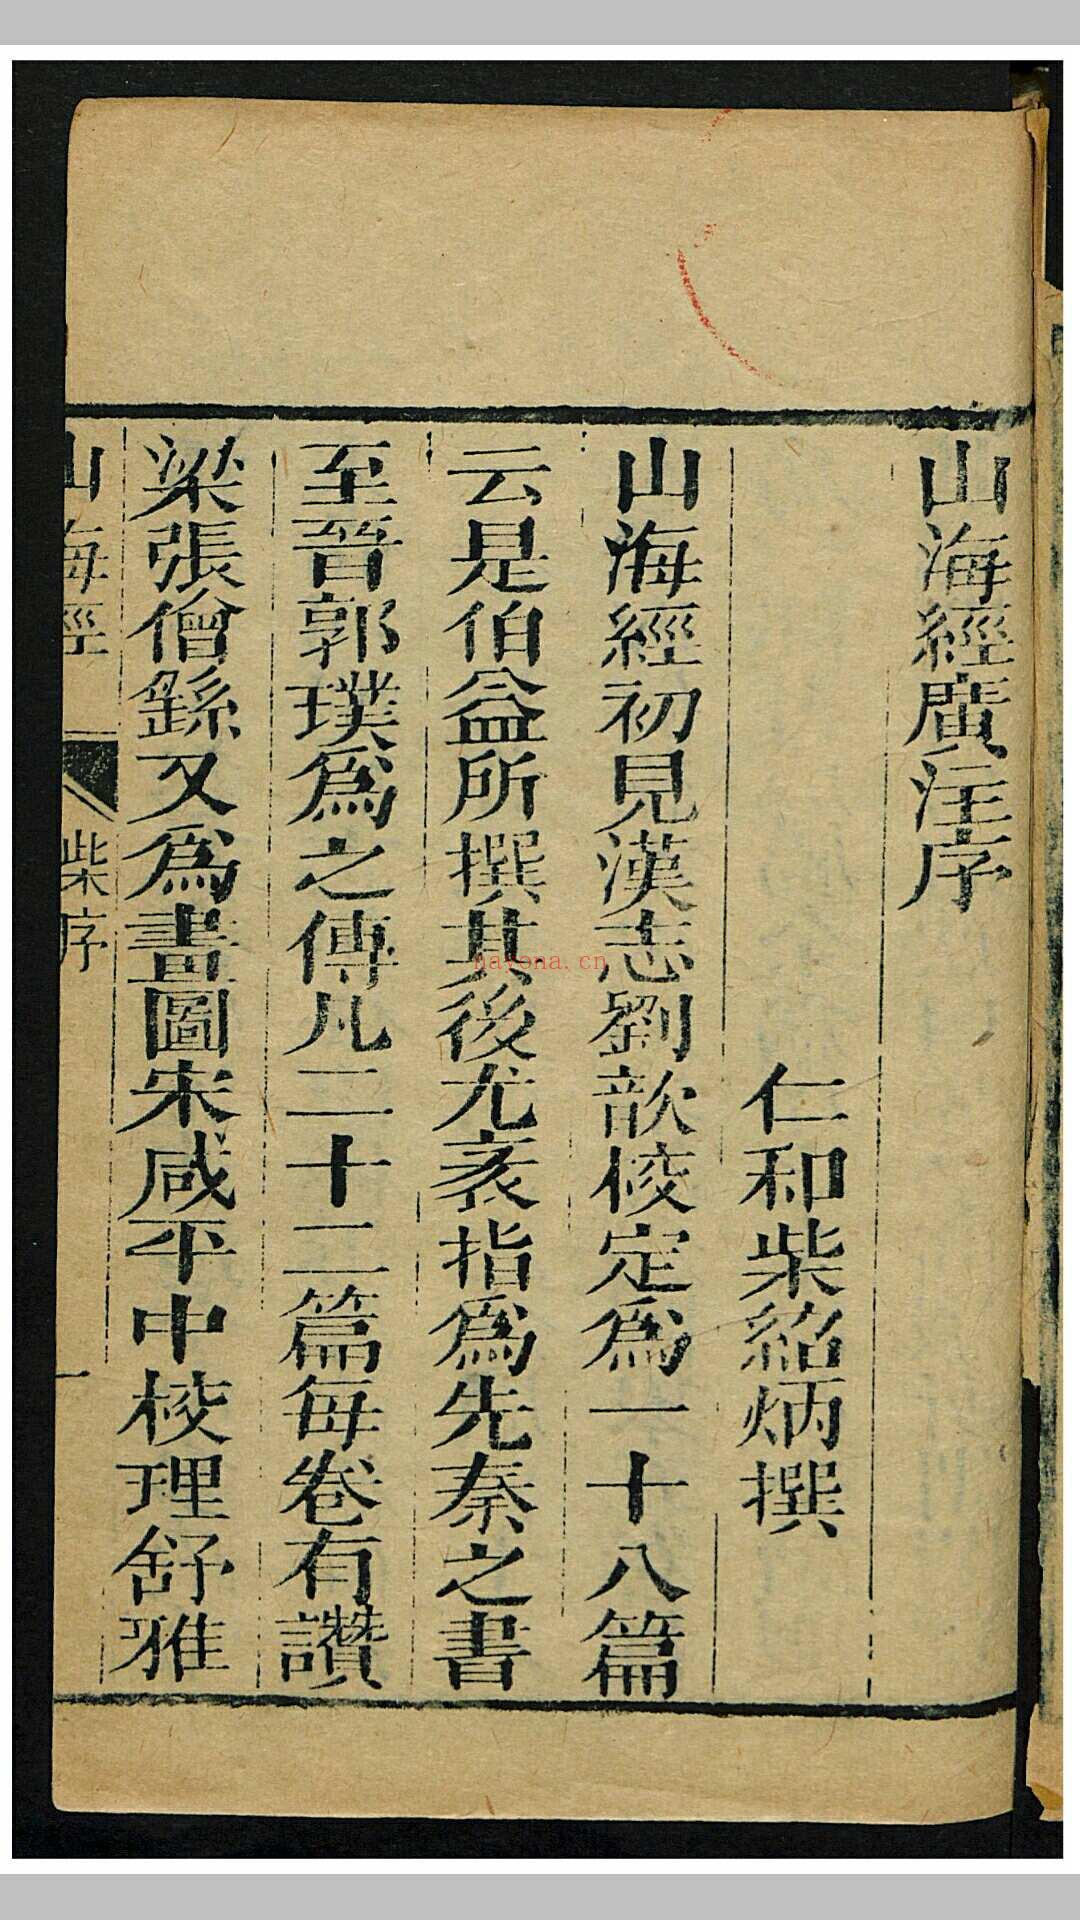 山海經廣注序
仁和柴紹炳撰
山海經初見漢志劉歆校定爲一十八篇
云是伯益所撰其後尤袤指爲先秦之書
至晉郭璞爲之傳凡二十二篇每卷有讚
梁張僧繇又爲畫圖宋咸平中校理舒雅
山海經
柴序
一
nayona.cn